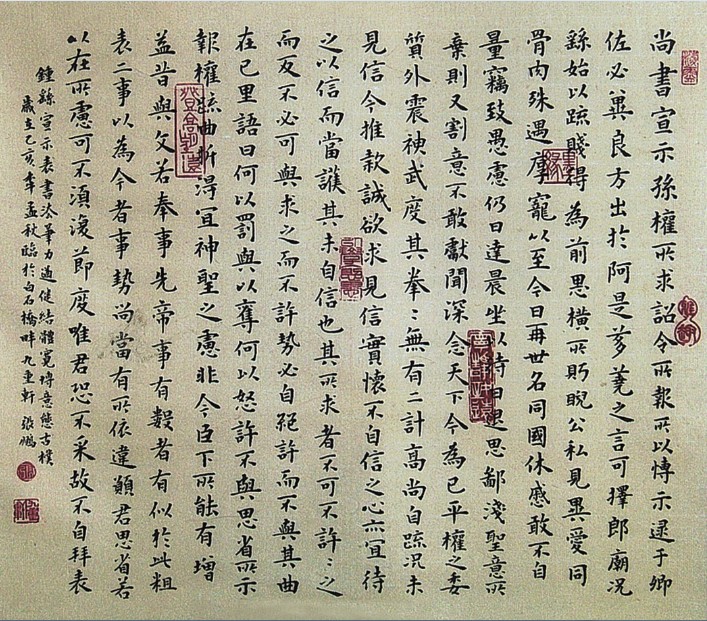 尚書宣示孫權所求詔令所報所以博示逮于卿
佐必冀良方出於阿是芻蕘之言可擇郎廟況
繇始以疏賤得為前恩橫所眄睨公私見異愛同
骨肉殊遇厚寵以至今日再世名同國休慼敢不自
量竊致愚慮仍日達晨坐以待旦退思鄙淺聖意所
棄則又割意不敢獻聞深念天下今為已平權之委
質外震神武度其拳〻無有二計高尚自疏況未
見信今推款誠欲求見信實懷不自信之心亦宜待
之以信而當護其未自信也其所求者不可不許〻之
而反不必可與求之而不許勢必自絕許而不與其曲
在己里語曰何以罰與以奪何以怒許不與思省所示
報權疏曲折得宜神聖之慮非今臣下所能有增
益昔與文若奉事先帝事有數者有似於此粗
表二事以為今者事勢尚當有所依違願君思省若
以在所慮可不須復節度唯君恐不采故不自拜表
鍾繇宣示表書法筆力遒健結體寬博意態古樸
歲在乙亥年孟秋臨於白石橋畔九重軒張鵬
登高望遠